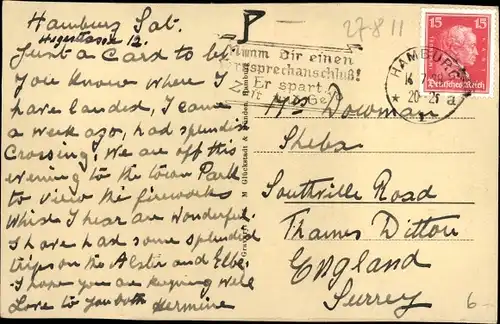 Hamburg Sat.
Just a Card to let
you know where I
have landed, I came
a week ago, had splendid
Crossing, We are off this
evening to the town Park
to view the fireworks
Which I hear are Wonderful.
I have had some splendid
trips on the Alster and Elbe.
I hope you are keeping Well
Love to you both Hermine
M Glückstadt & Münden, Hamburg
27-8 11
Dir einen
Fernsprechanschluß!
Er spart
Zeit Geld
HAMBURG
20-21 a
15 15
Deutsches Reich
Mrs Dowman
Sheba
Southville Road
Thames Ditton
England
Surrey
6-